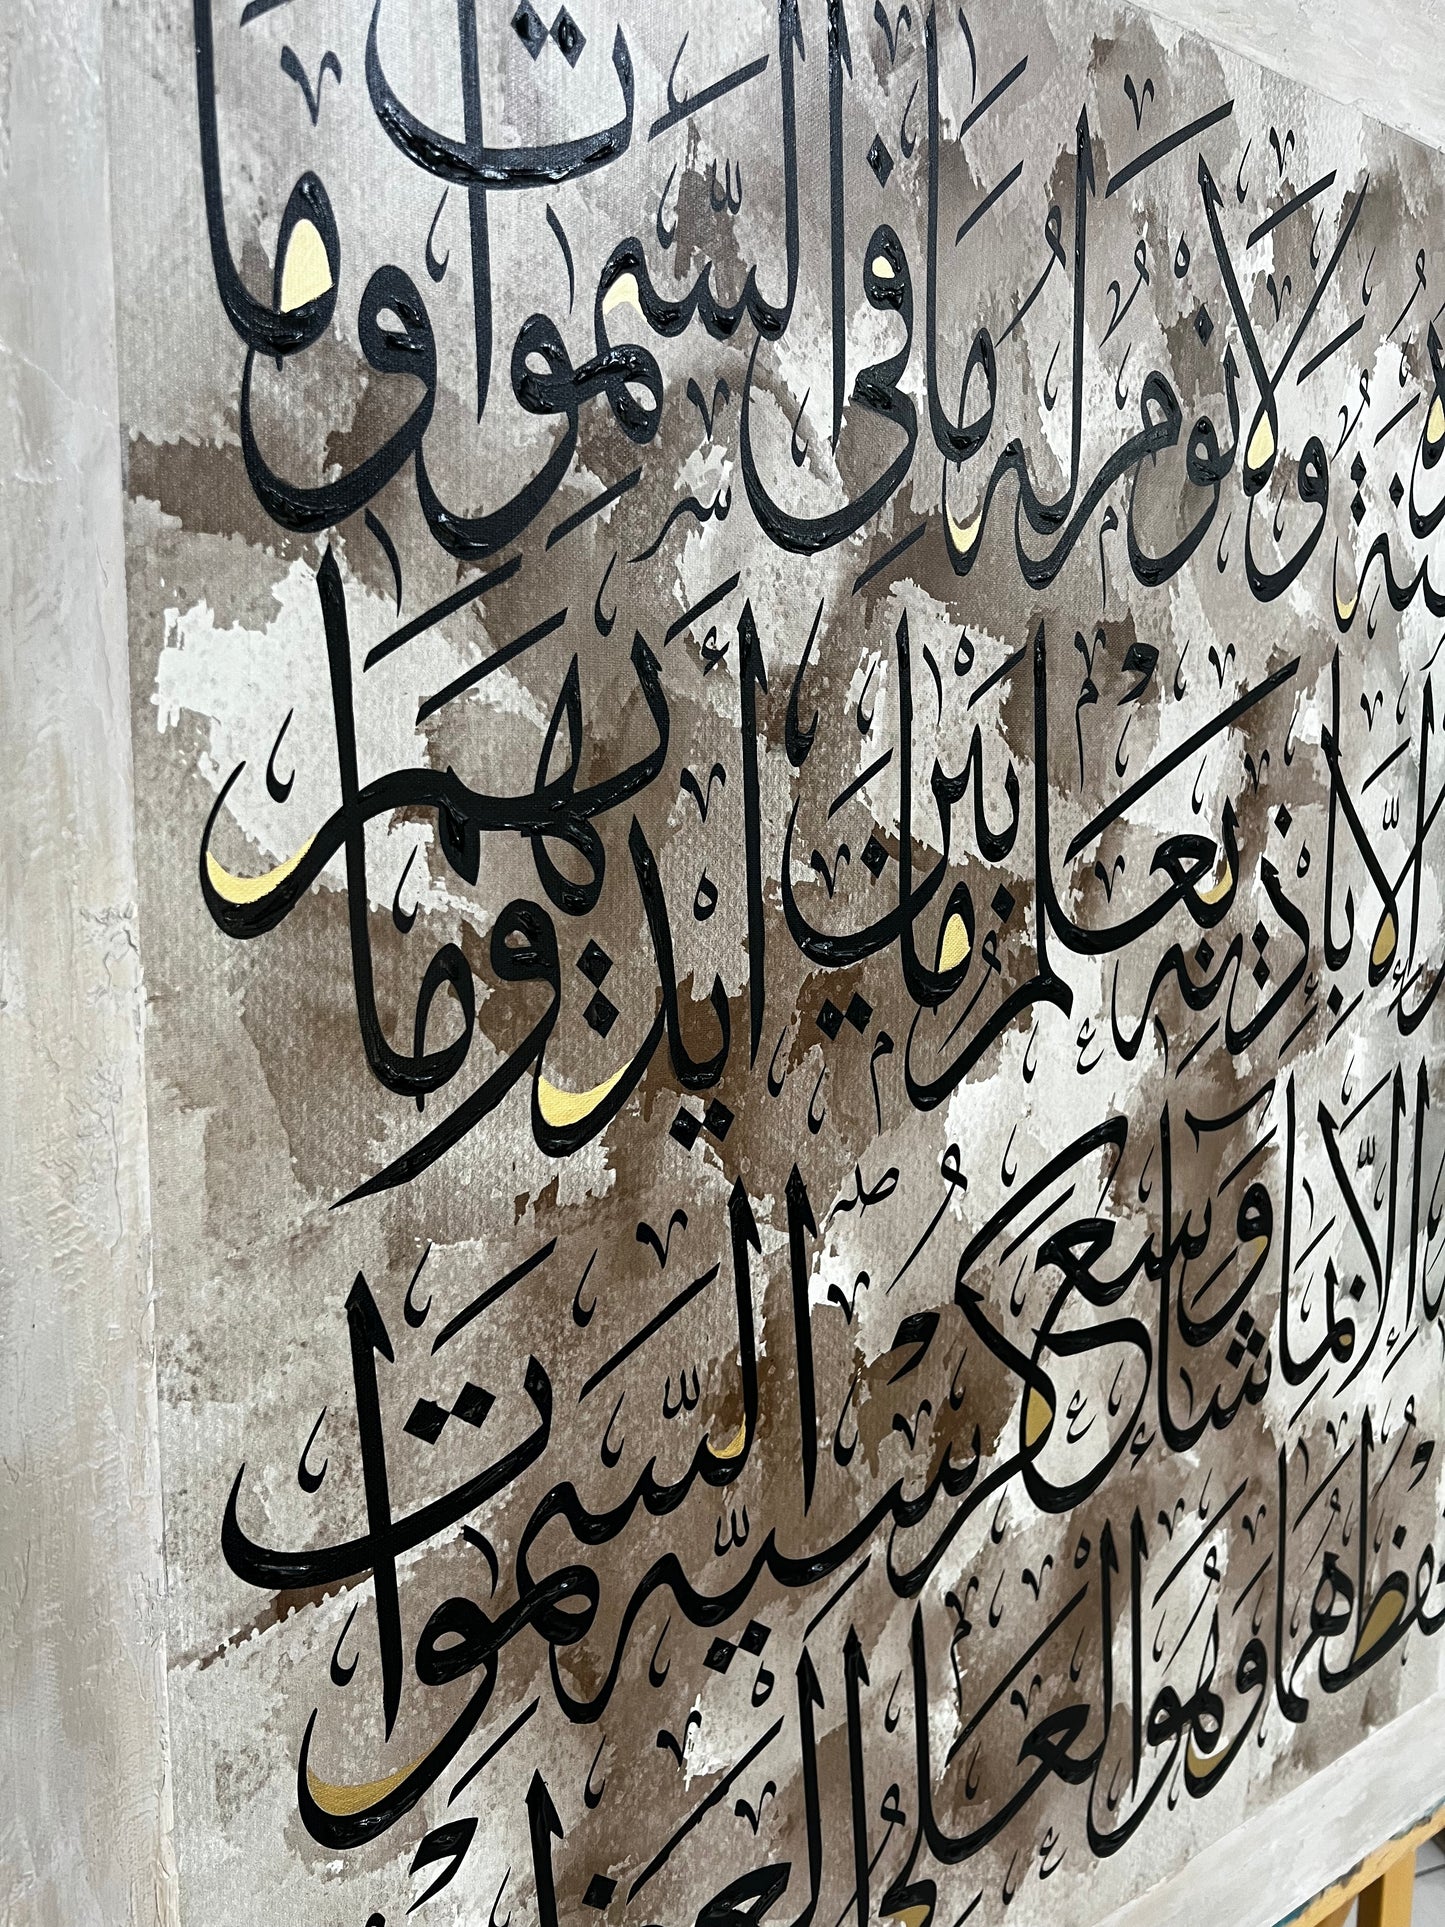 سِنَةٌ وَلَا نَوْمٌ لَهُ مَا فِي السَّمٰوَاتِ وَمَا
إِلَّا بِإِذْنِهِ يَعْلَمُ مَا بَيْنَ أَيْدِيهِمْ وَمَا
إِلَّا بِمَا شَاءَ وَسِعَ كُرْسِيُّهُ السَّمٰوَاتِ
حِفْظُهُمَا وَهُوَ الْعَلِيُّ